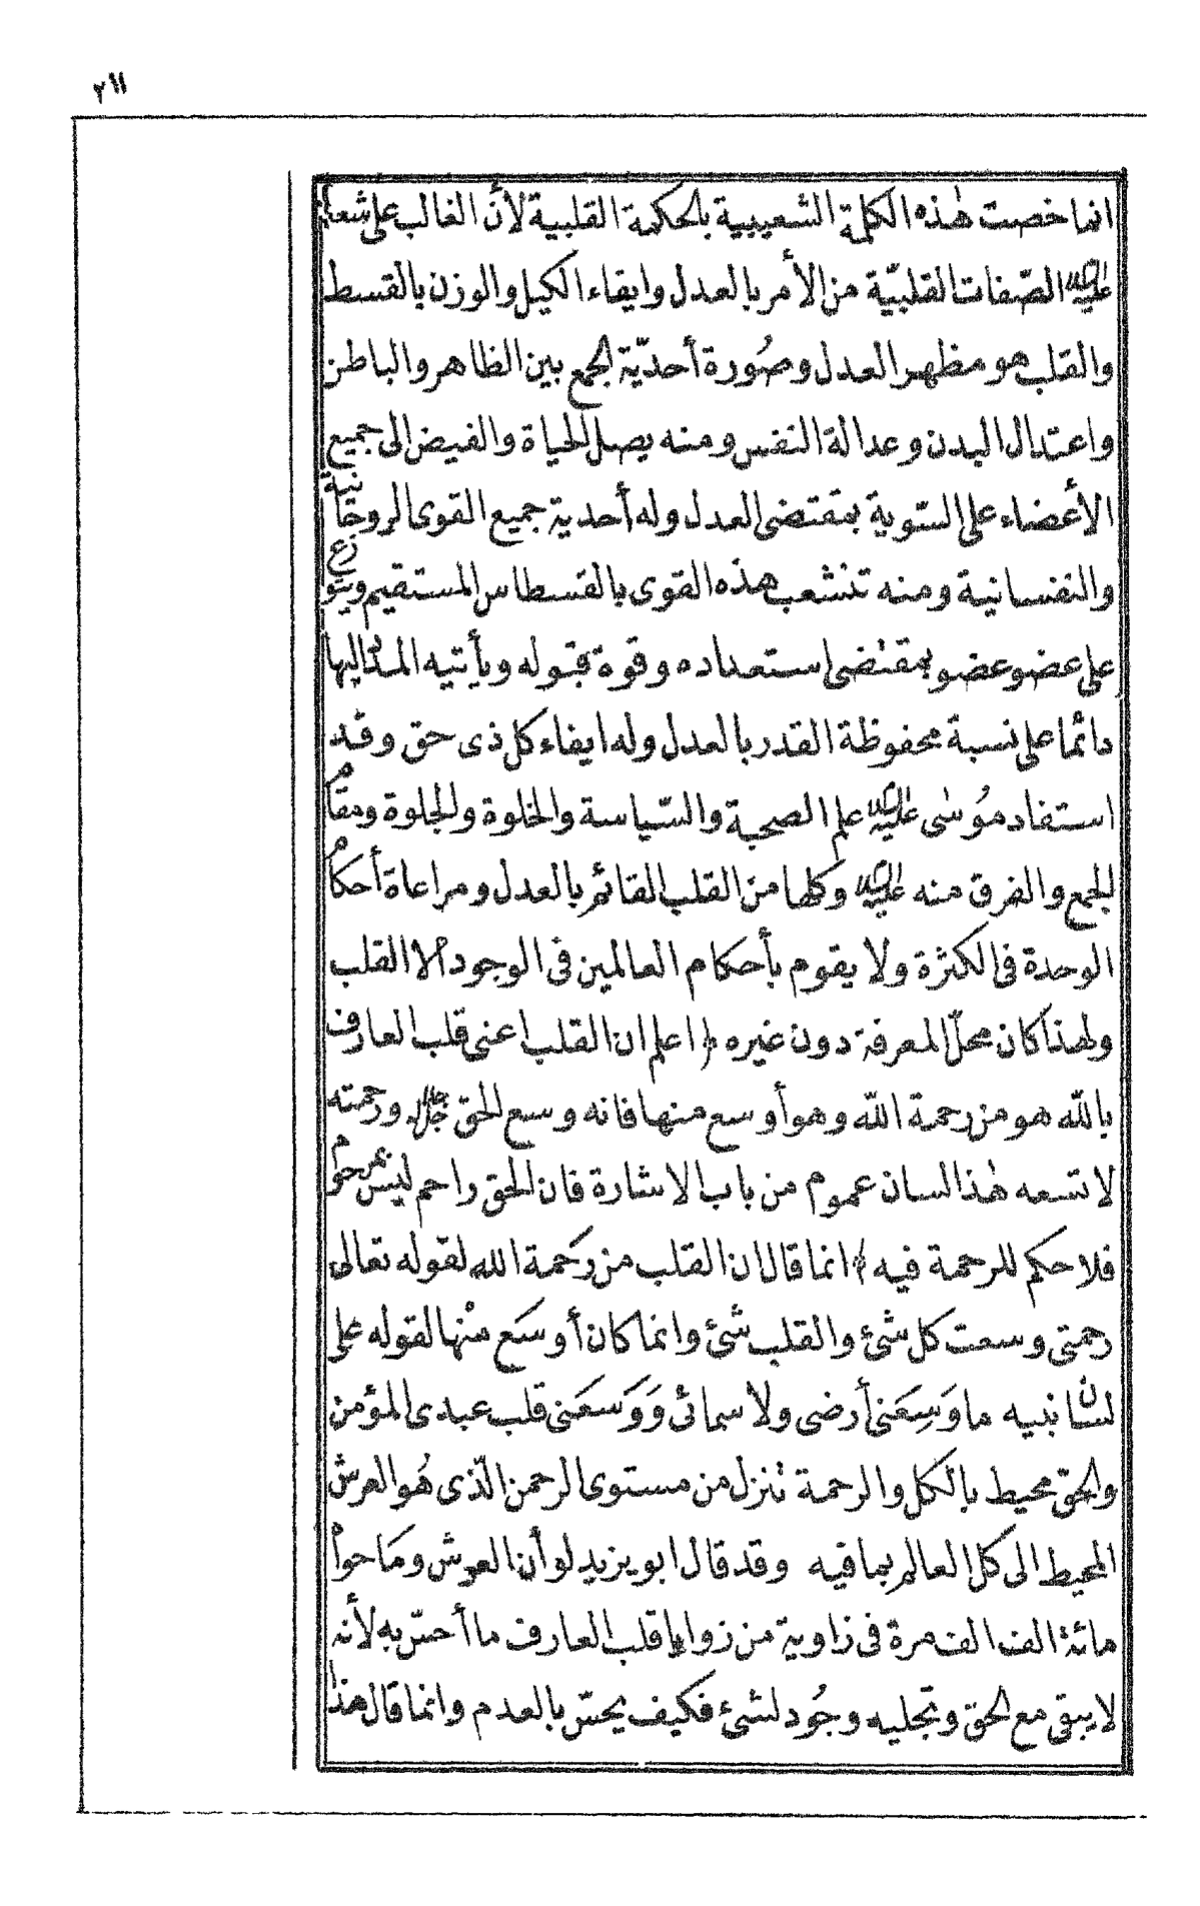 ٢١١
انما خصت هٰذه الكلمة الشعيبية بالحكمة القلبية لأنّ الغالب على شعيب
عليه السلام الصّفات القلبيّة من الأمر بالعدل وايفاء الكيل والوزن بالقسط
والقلب هو مظهر العدل وصُورة أحديّة الجمع بين الظاهر والباطن
واعتدال البدن وعدالة النفس ومنه يصل الحياة والفيض الى جميع
الأعضاء على السّوية بمقتضى العدل وله أحدية جميع القوى الروحانية
والنفسانية ومنه تنشعب هذه القوى بالقسطاس المستقيم ويتوزع
على عضو عضو بمقتضى استعداده وقوة قبوله ويأتيه المدد اليها
دائما على نسبة محفوظة القدر بالعدل وله ايفاء كل ذى حق وقد
استفاد مُوسٰى عليه السلام علم الصحبة والسّياسة والخلوة والجلوة ومقام
الجمع والفرق منه عليه السلام وكلها من القلب القائم بالعدل ومراعاة أحكام
الوحدة فى الكثرة ولا يقوم بأحكام العالمين فى الوجود الا القلب
ولهذا كان محلّ المعرفة دون غيره ﴿ اعلم ان القلب اعنى قلب العارف
بالله هو من رحمة الله وهو أوسع منها فانه وسع الحق جل جلاله ورحمته
لا تسعه هٰذا لسان عموم من باب الاشارة فان الحق راحم ليس بمرحوم
فلا حكم للرحمة فيه ﴾ انما قال ان القلب من رَحمة الله لقوله تعالى
رحمتى وسعت كل شئ والقلب شئ وانما كان أوسَع منْها لقوله على
لسان نبيه ما وَسِعَنى أرضى ولا سمائى وَوَسَعَنى قلب عبدى المؤمن
والحق محيط بالكل والرحمة تنزل من مستوى الرحمن الّذى هُو العرش
المحيط الى كل العالم بما فيه وقد قال ابو يزيد لو أن العرش ومَا حواه
مائة الف الف مرة فى زاوية من زوايا قلب العارف ما أحسّ به لأنه
لا يبقى مع الحق وتجليه وجُود لشئ فكيف يحسّ بالعدم وانما قال هذا